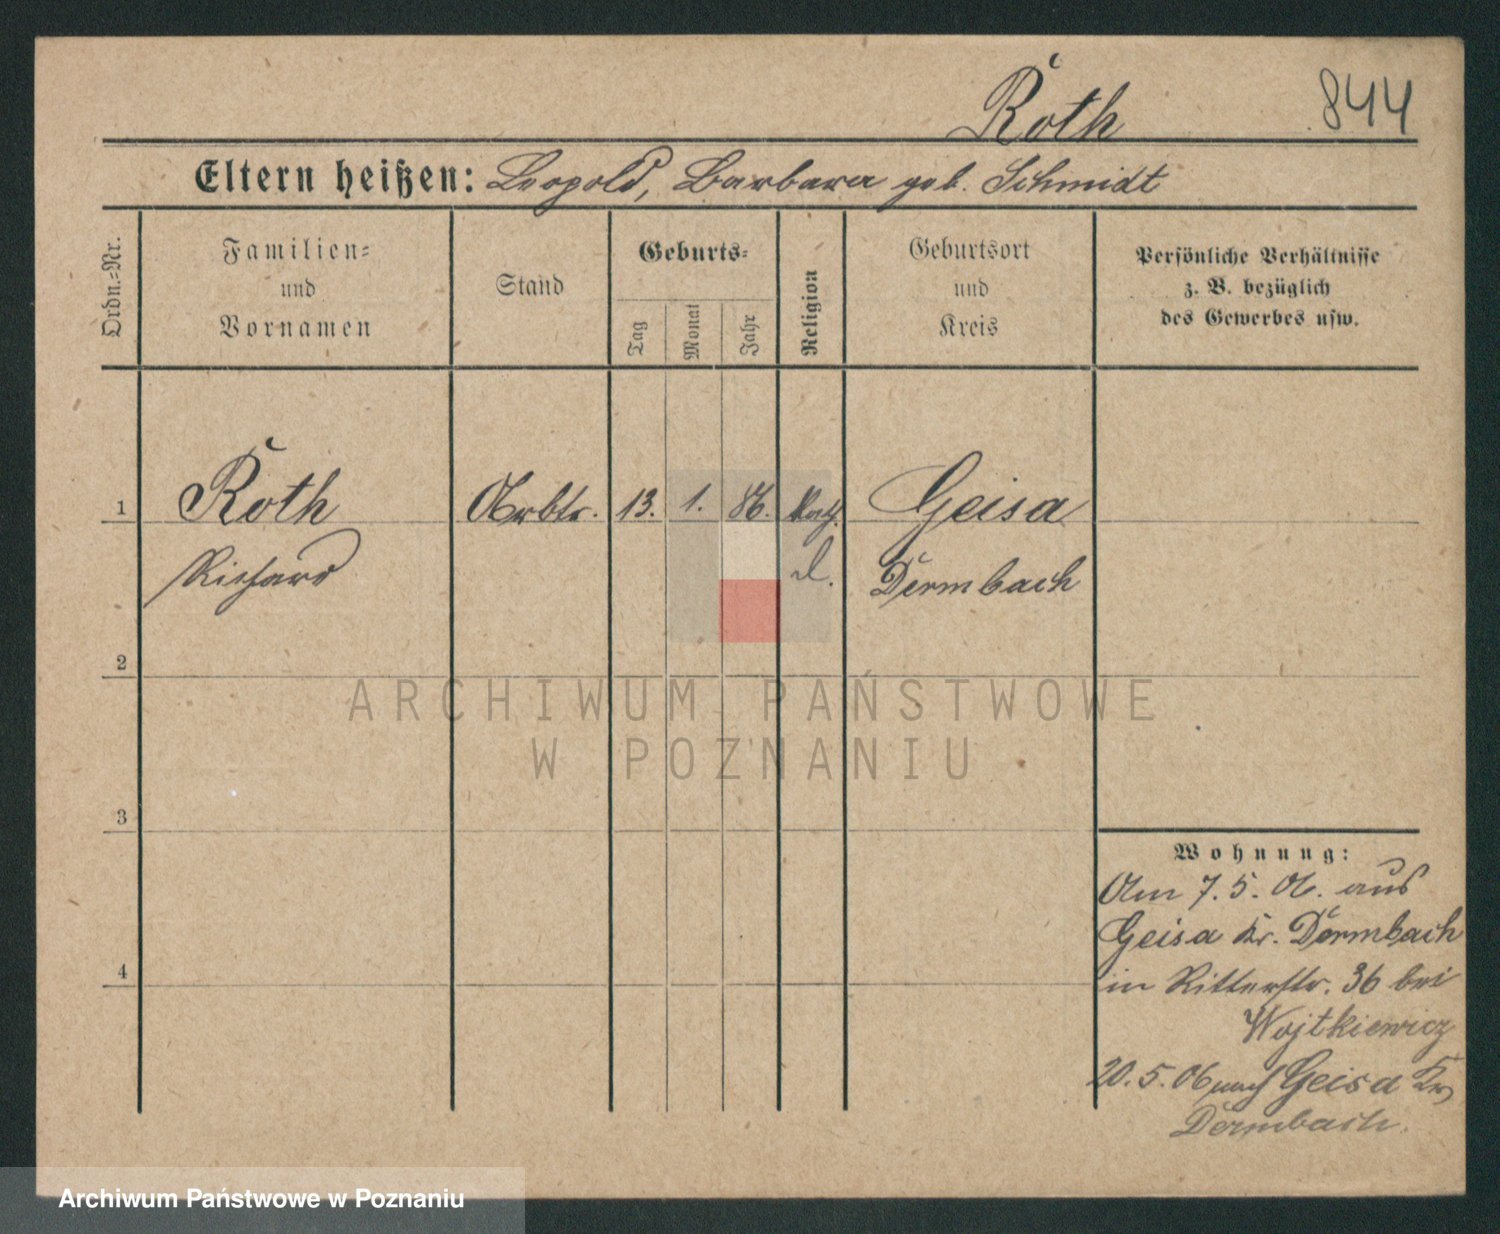 Roth 844
Eltern heißen: Leopold, Barbara geb. Schmidt
Ordn.-Nr.
Familien-
und
Vornamen
Stand
Geburts-
Tag
Monat
Jahr
Religion
Geburtsort
und
Kreis
Persönliche Verhältnisse
z. B. bezüglich
des Gewerbes usw.
1 Roth Arbtr. 13. 1. 86. kath. Geisa
Richard d. Dermbach
2
ARCHIWUM PAŃSTWOWE
W POZNANIU
3
Wohnung:
Am 7. 5. 06. aus
Geisa Kr. Dermbach
4
in Ritterstr. 36 bei
Wojtkiewicz
20. 5. 06 nach Geisa Kr
Dermbach.
Archiwum Państwowe w Poznaniu